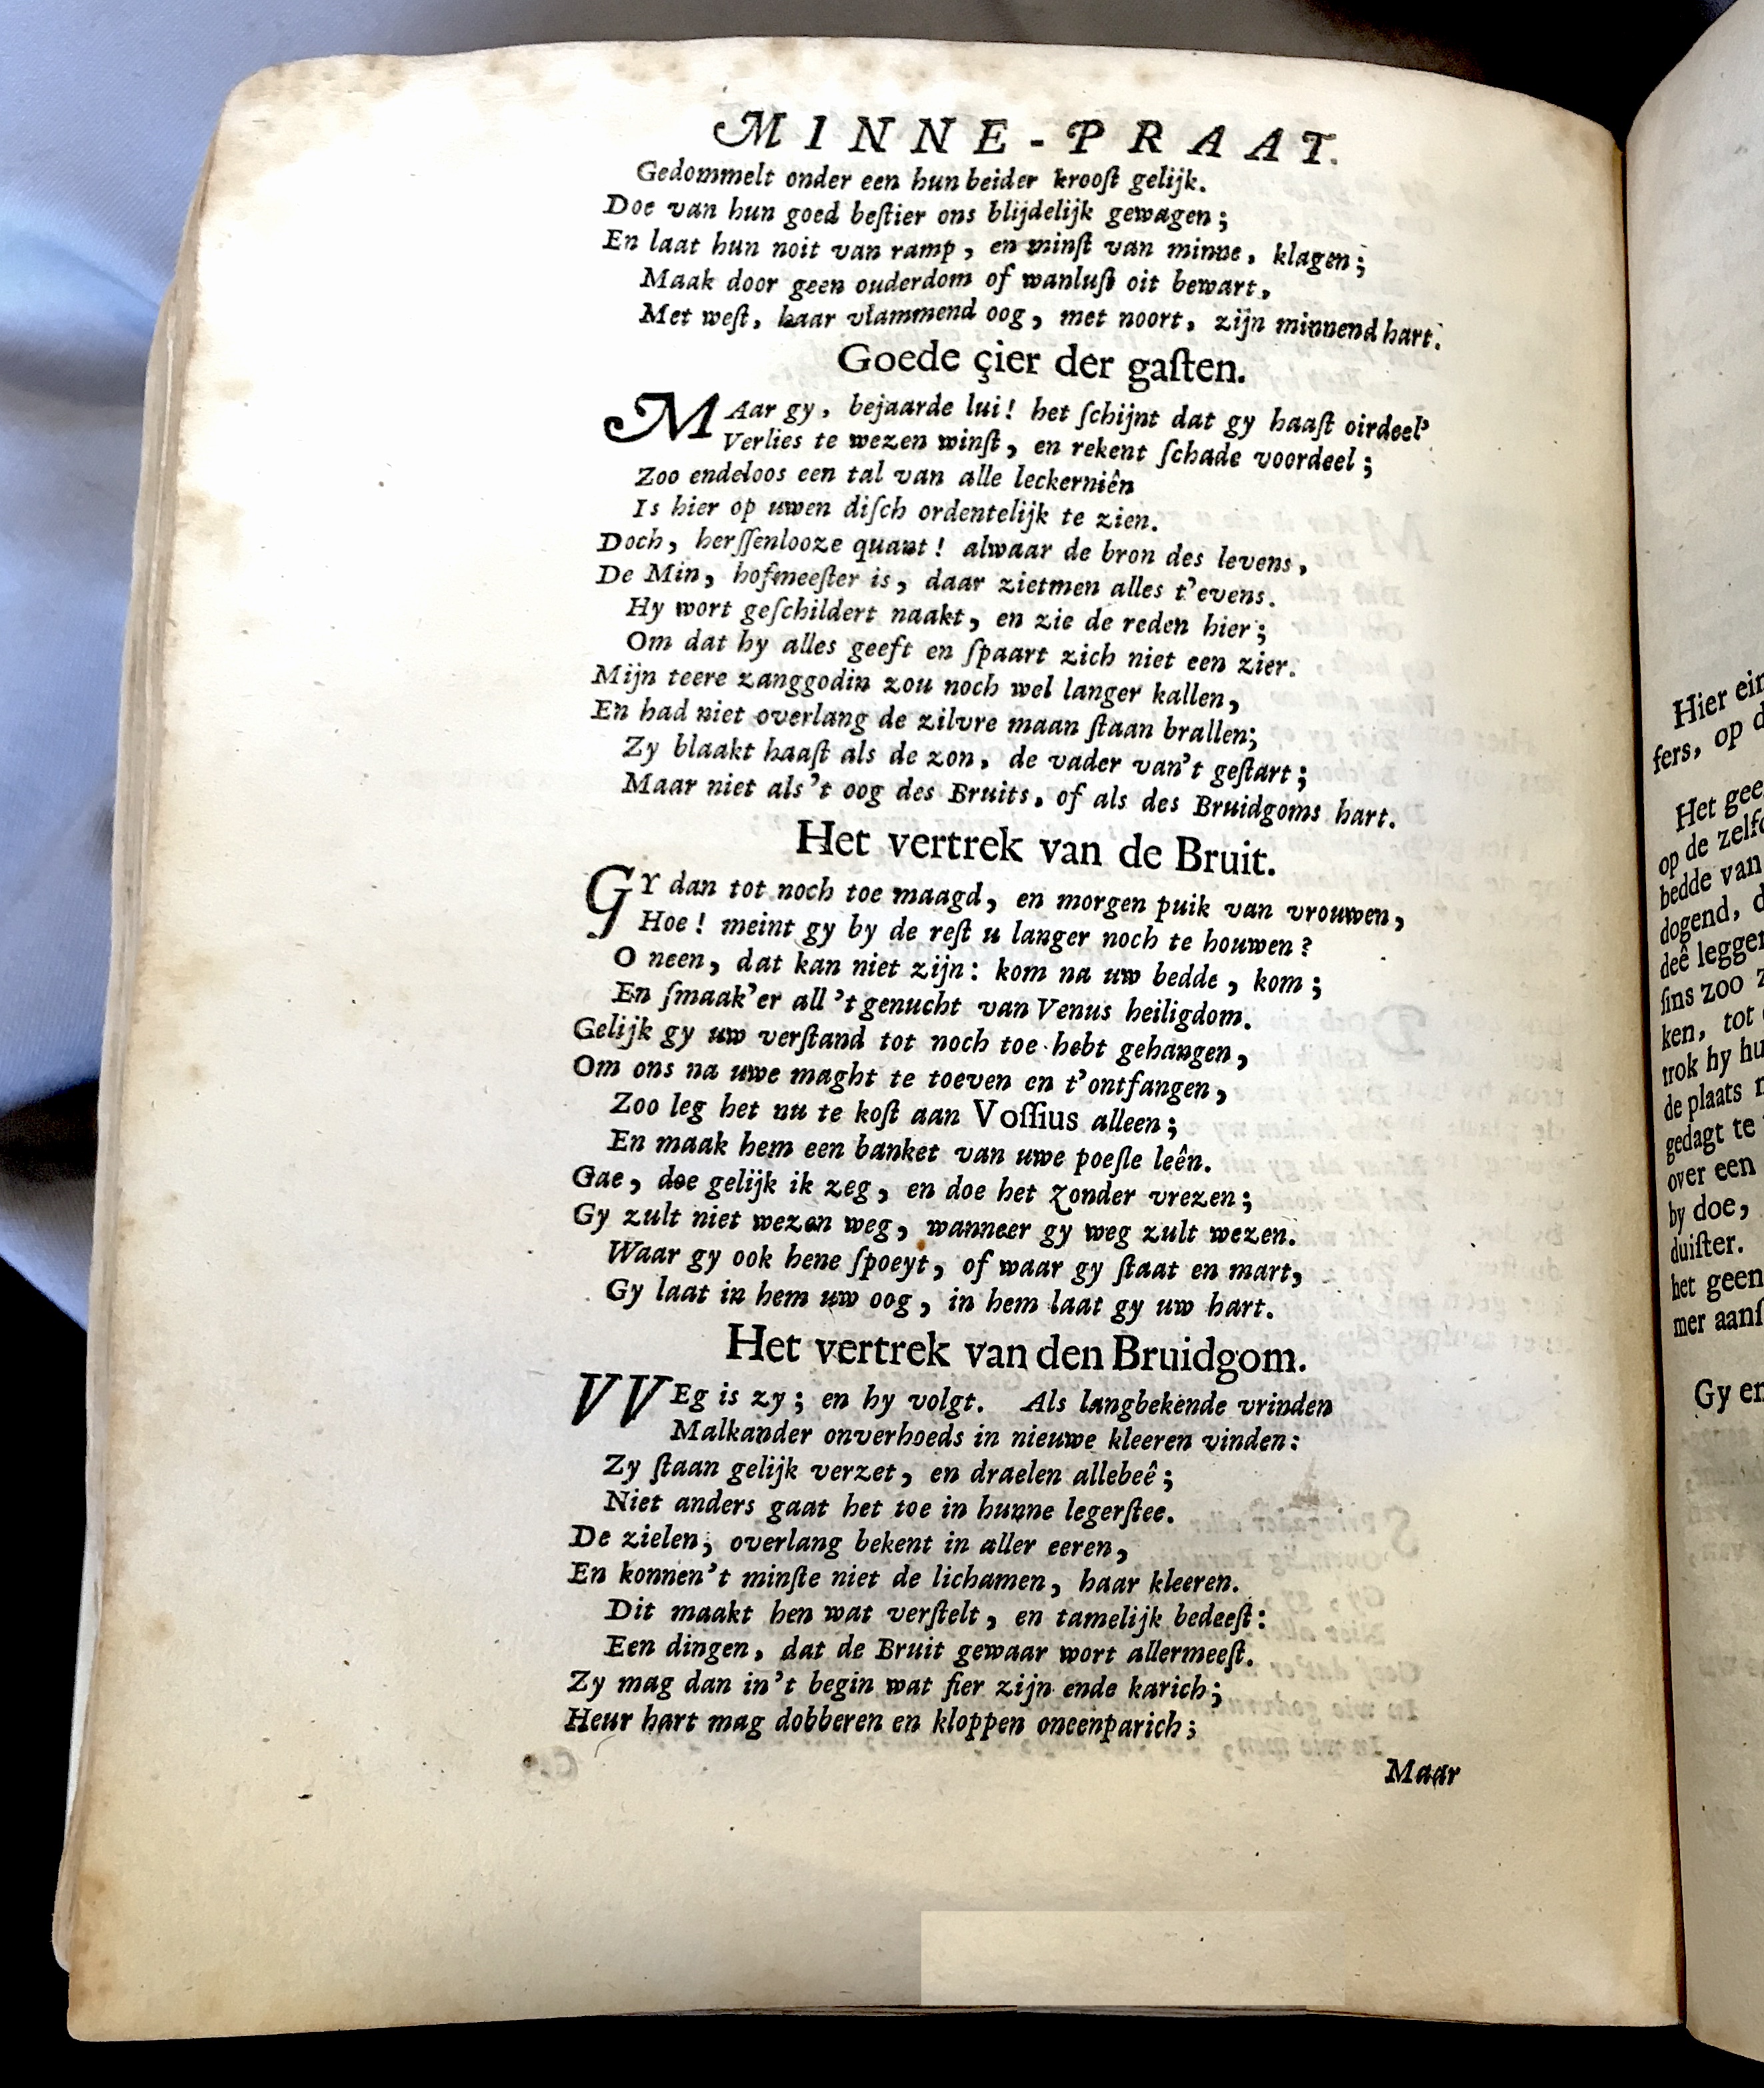 MINNE-PRAAT.
Gedommelt onder een hun beider krooſt gelijk.
Doe van hun goed beſtier ons blijdelijk gewagen;
En laat hun noit van ramp, en minſt van minne, klagen;
Maak door geen ouderdom of wanluſt oit bewart,
Met weſt, haar vlammend oog, met noort, zijn minnend hart.
Goede çier der gaſten.
MAar gy, bejaarde lui! het ſchijnt dat gy haaſt oirdeel'
Verlies te wezen winſt, en rekent ſchade voordeel;
Zoo endeloos een tal van alle leckerniên
Is hier op uwen diſch ordentelijk te zien.
Doch, herſſenlooze quant! alwaar de bron des levens,
De Min, hofmeeſter is, daar zietmen alles t'evens.
Hy wort geſchildert naakt, en zie de reden hier;
Om dat hy alles geeft en ſpaart zich niet een zier.
Mijn teere zanggodin zou noch wel langer kallen,
En had niet overlang de zilvre maan ſtaan brallen;
Zy blaakt haaſt als de zon, de vader van't geſtart;
Maar niet als 't oog des Bruits, of als des Bruidgoms hart.
Het vertrek van de Bruit.
GY dan tot noch toe maagd, en morgen puik van vrouwen,
Hoe! meint gy by de reſt u langer noch te houwen?
O neen, dat kan niet zijn: kom na uw bedde, kom;
En ſmaak'er all 't genucht van Venus heiligdom.
Gelijk gy uw verſtand tot noch toe hebt gehangen,
Om ons na uwe maght te toeven en t'ontfangen,
Zoo leg het nu te koſt aan Voſſius alleen;
En maak hem een banket van uwe poeſle leên.
Gae, doe gelijk ik zeg, en doe het zonder vrezen;
Gy zult niet wezen weg, wanneer gy weg zult wezen.
Waar gy ook hene ſpoeyt, of waar gy ſtaat en mart,
Gy laat in hem uw oog, in hem laat gy uw hart.
Het vertrek van den Bruidgom.
VVEg is zy; en hy volgt. Als langbekende vrinden
Malkander onverhoeds in nieuwe kleeren vinden:
Zy ſtaan gelijk verzet, en draelen allebeê;
Niet anders gaat het toe in hunne legerſtee.
De zielen, overlang bekent in aller eeren,
En konnen't minſte niet de lichamen, haar kleeren.
Dit maakt hen wat verſtelt, en tamelijk bedeeſt:
Een dingen, dat de Bruit gewaar wort allermeeſt.
Zy mag dan in't begin wat fier zijn ende karich;
Heur hart mag dobberen en kloppen oneenparich;
Maar
Hier
fers, op
Het
op de
bedde van
dogend,
deê
ſins zoo
ken, tot
trok hy
de plaats
gedagt te
over een
by doe,
duiſter.
het geen
mer
Gy